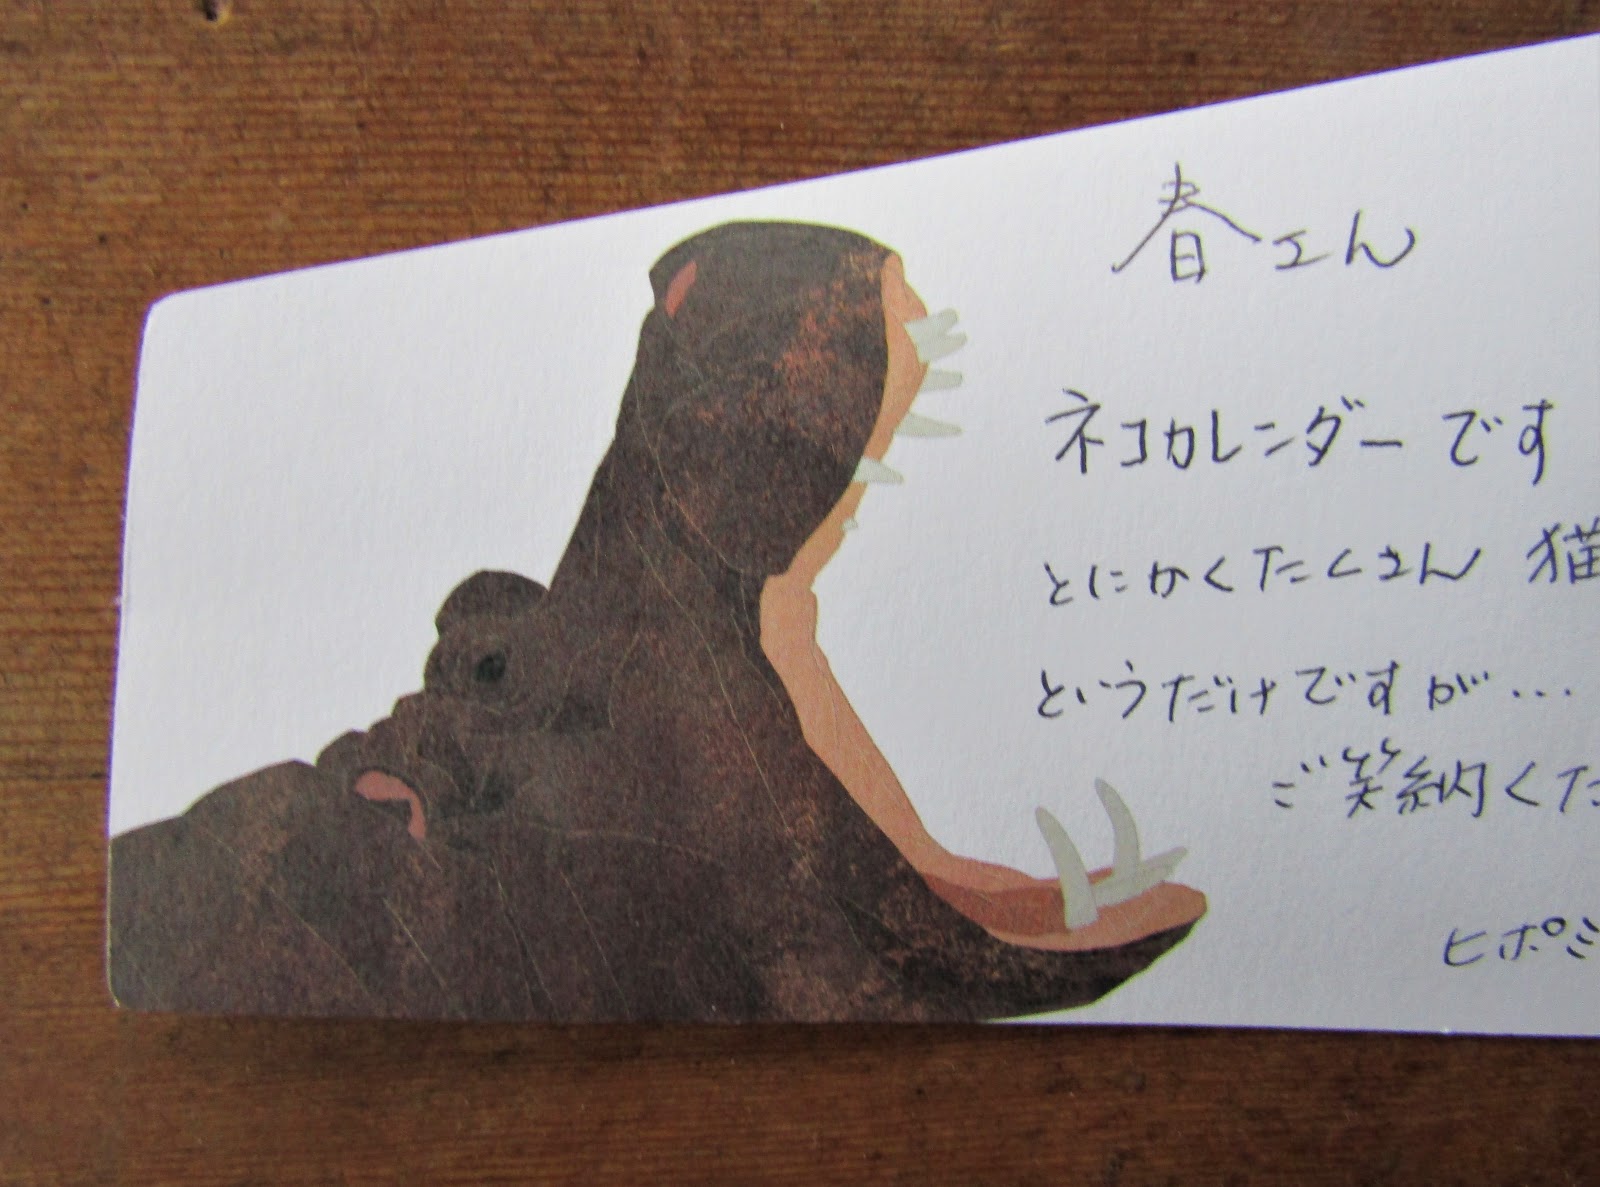 春エん
ネコカレンダーです
とにかくたくさん 猫
というだけですが…
ご笑納くた
ヒポミ